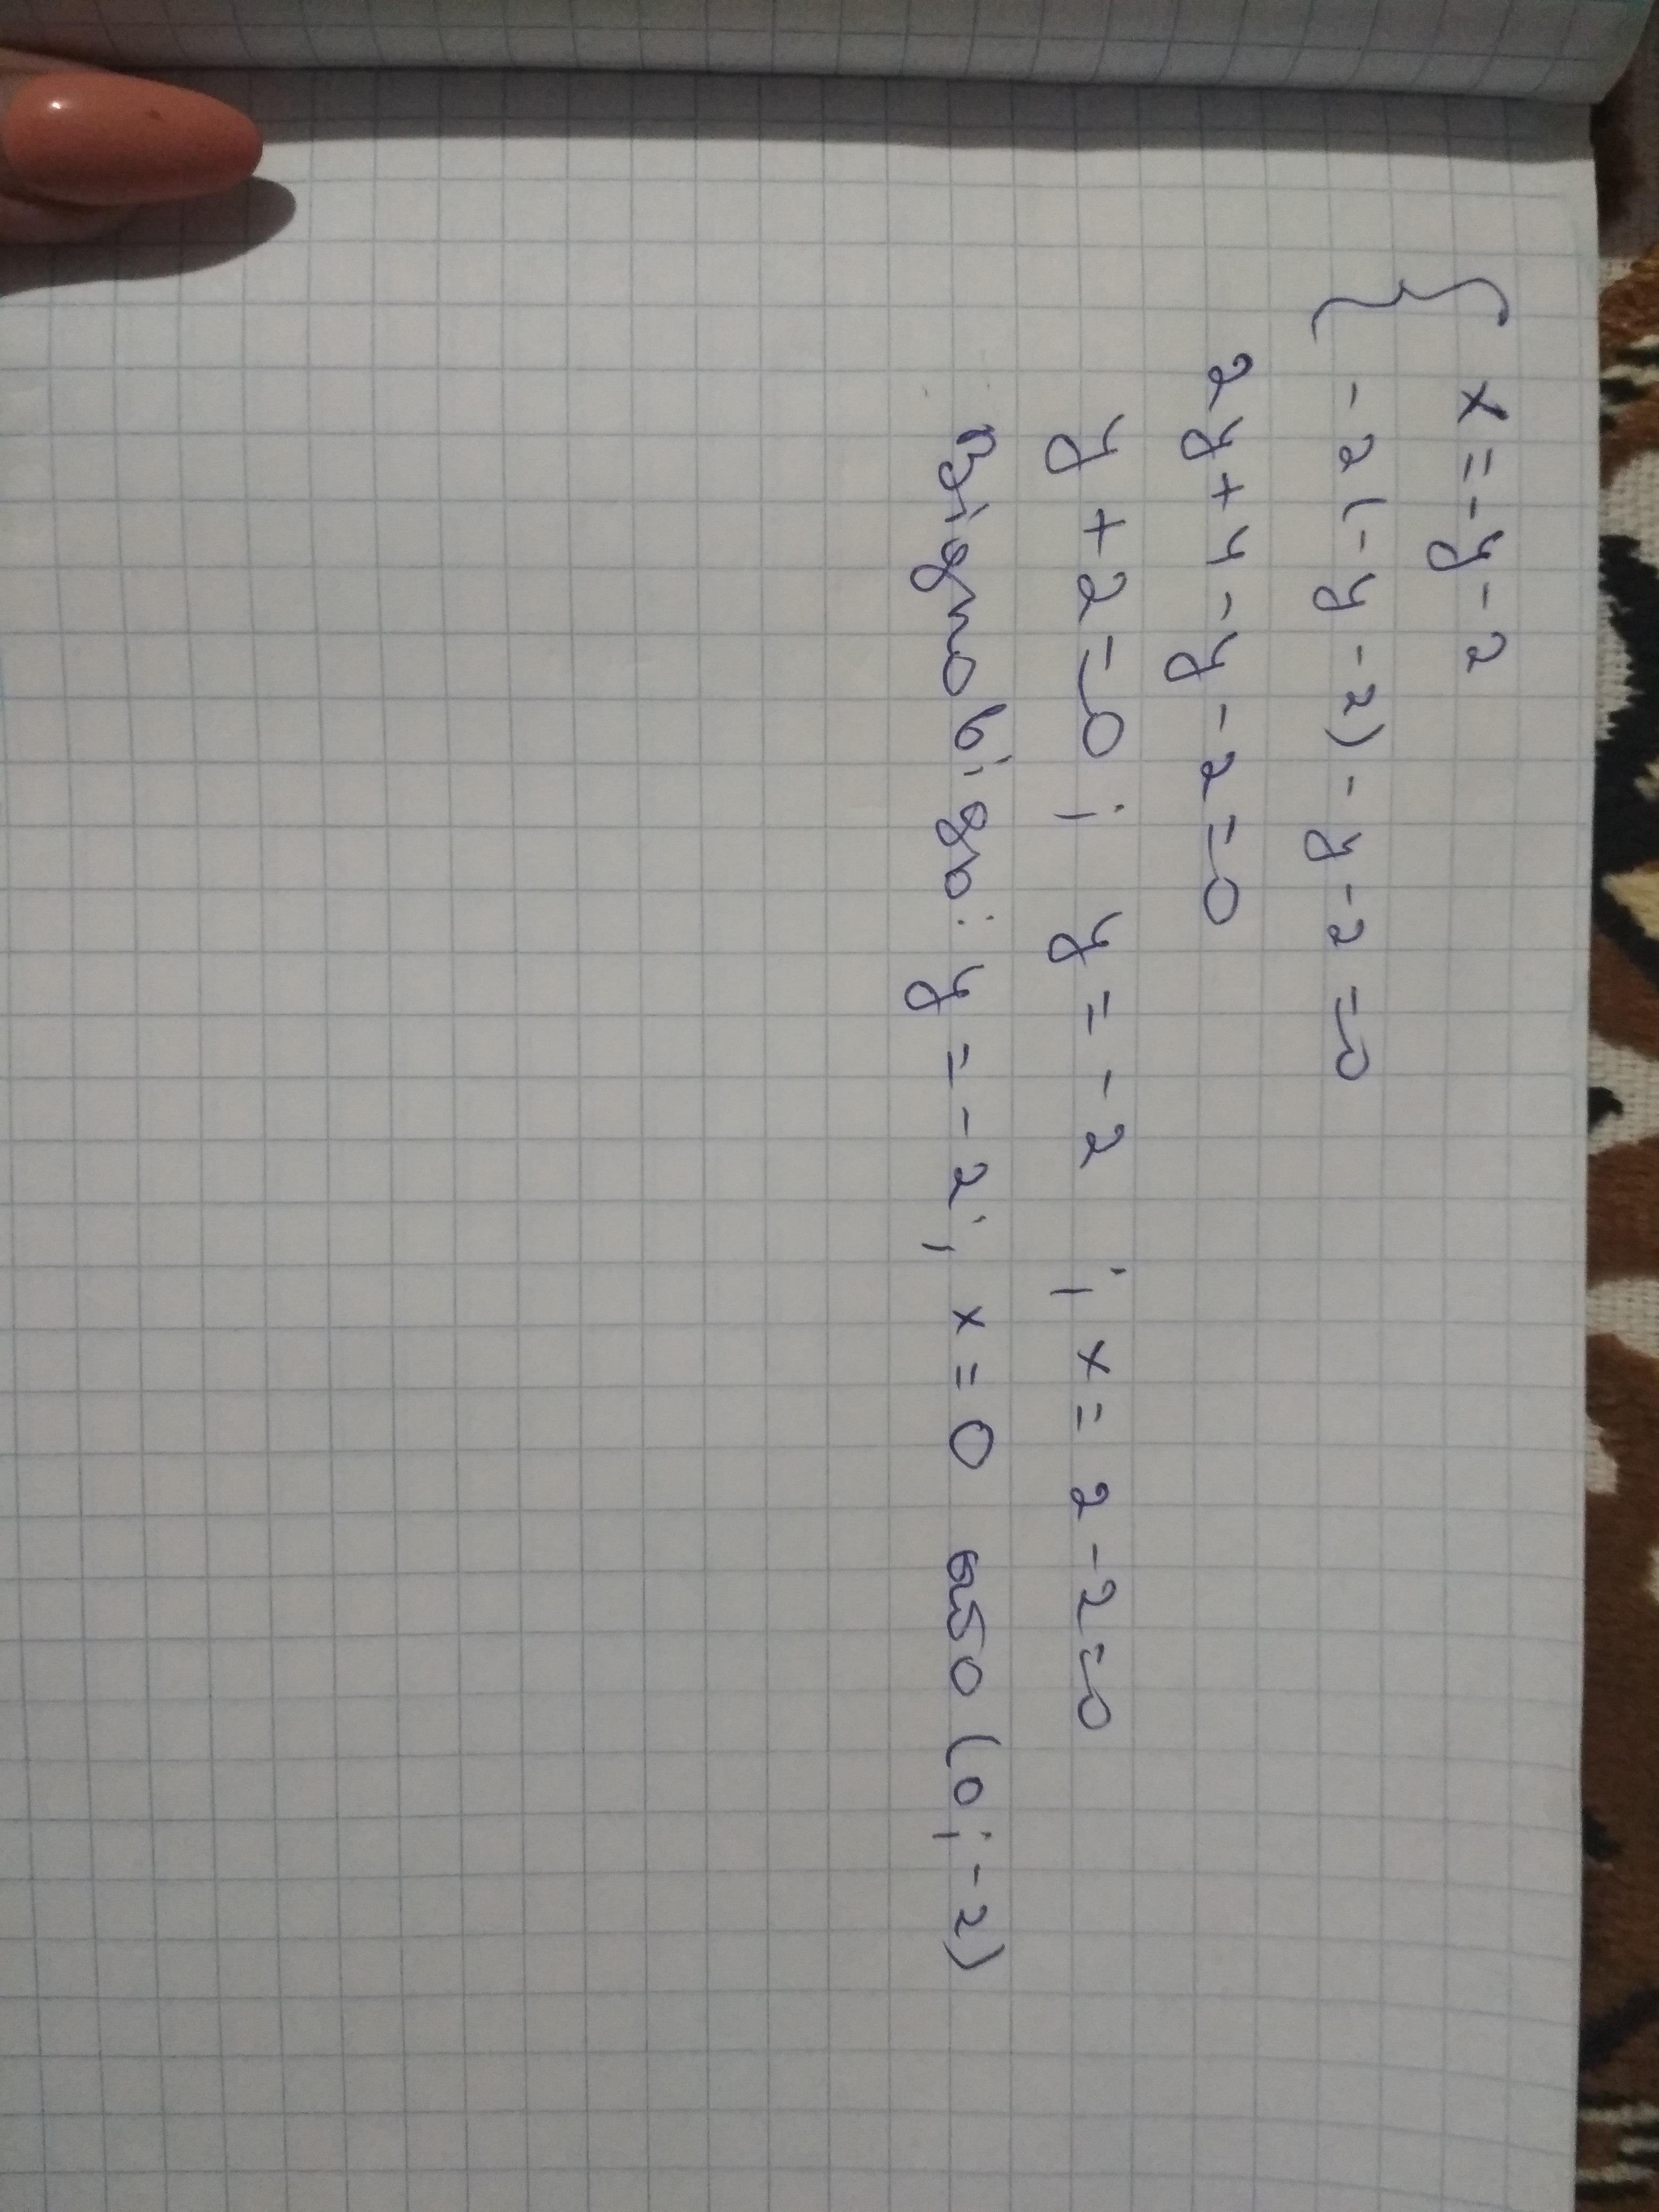 { x = -y - 2
-2(-y-2)-y-2=0
2y+4-y-2=0
y+2=0; y=-2; x=2-2=0
Відповідь: y=-2; x=0 або (0;-2)